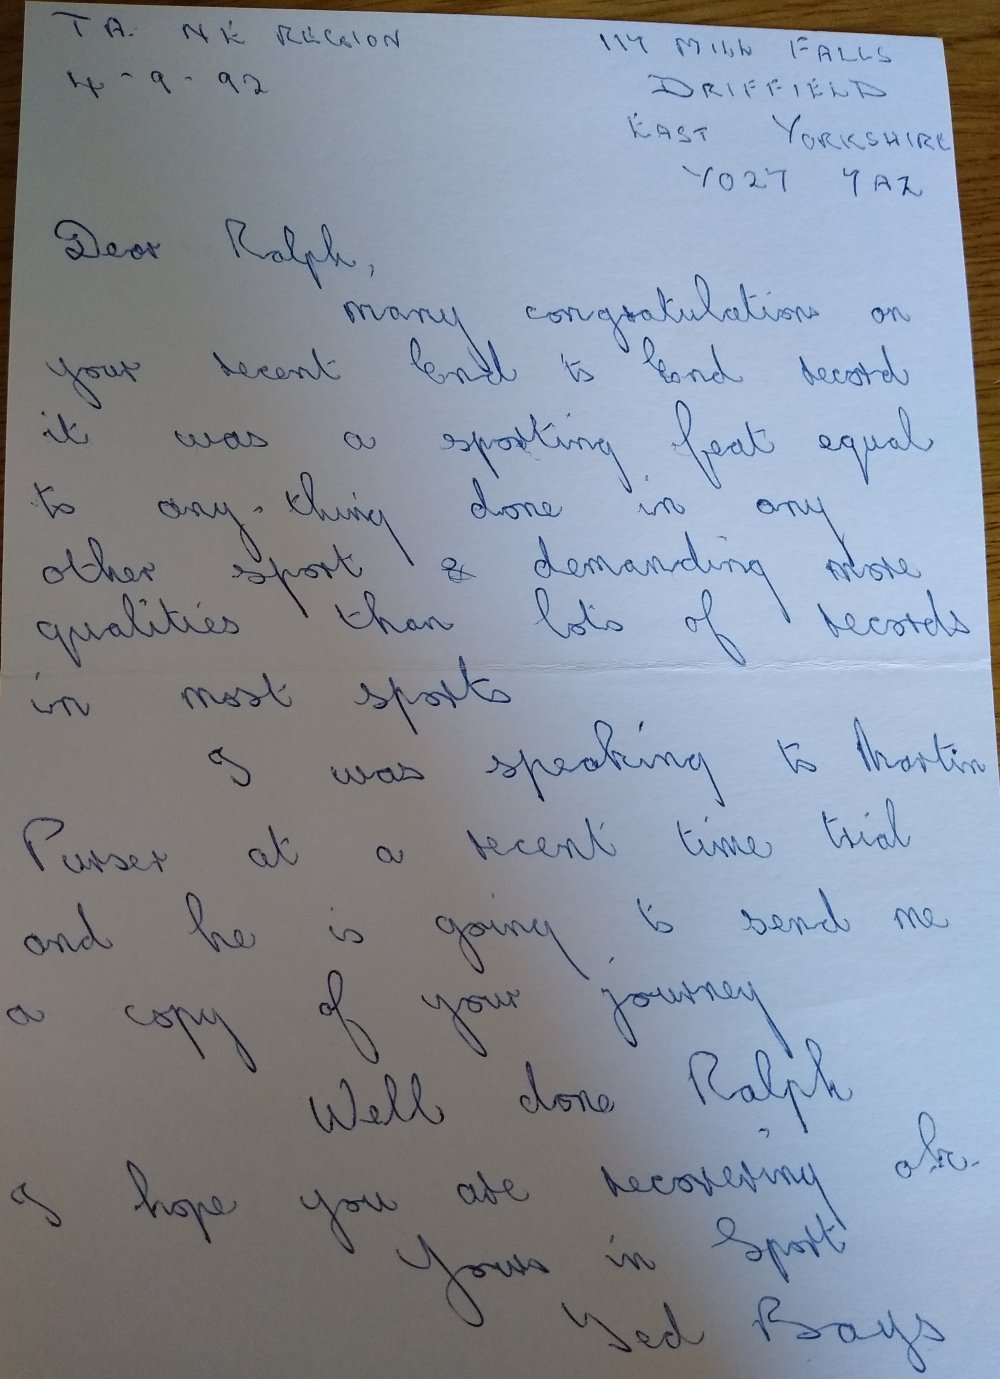 TA. NE REGION
4-9-92
114 MILL FALLS
DRIFFIELD
EAST YORKSHIRE
YO27 7AZ
Dear Ralph,
many congratulations on
your recent End to End record
it was a sporting feat equal
to any-thing done in any
other sport & demanding more
qualities than lots of records
in most sports
I was speaking to Martin
Purser at a recent time trial
and he is going to send me
a copy of your journey
Well done Ralph
I hope you are recovering ok.
Yours in Sport
Bays